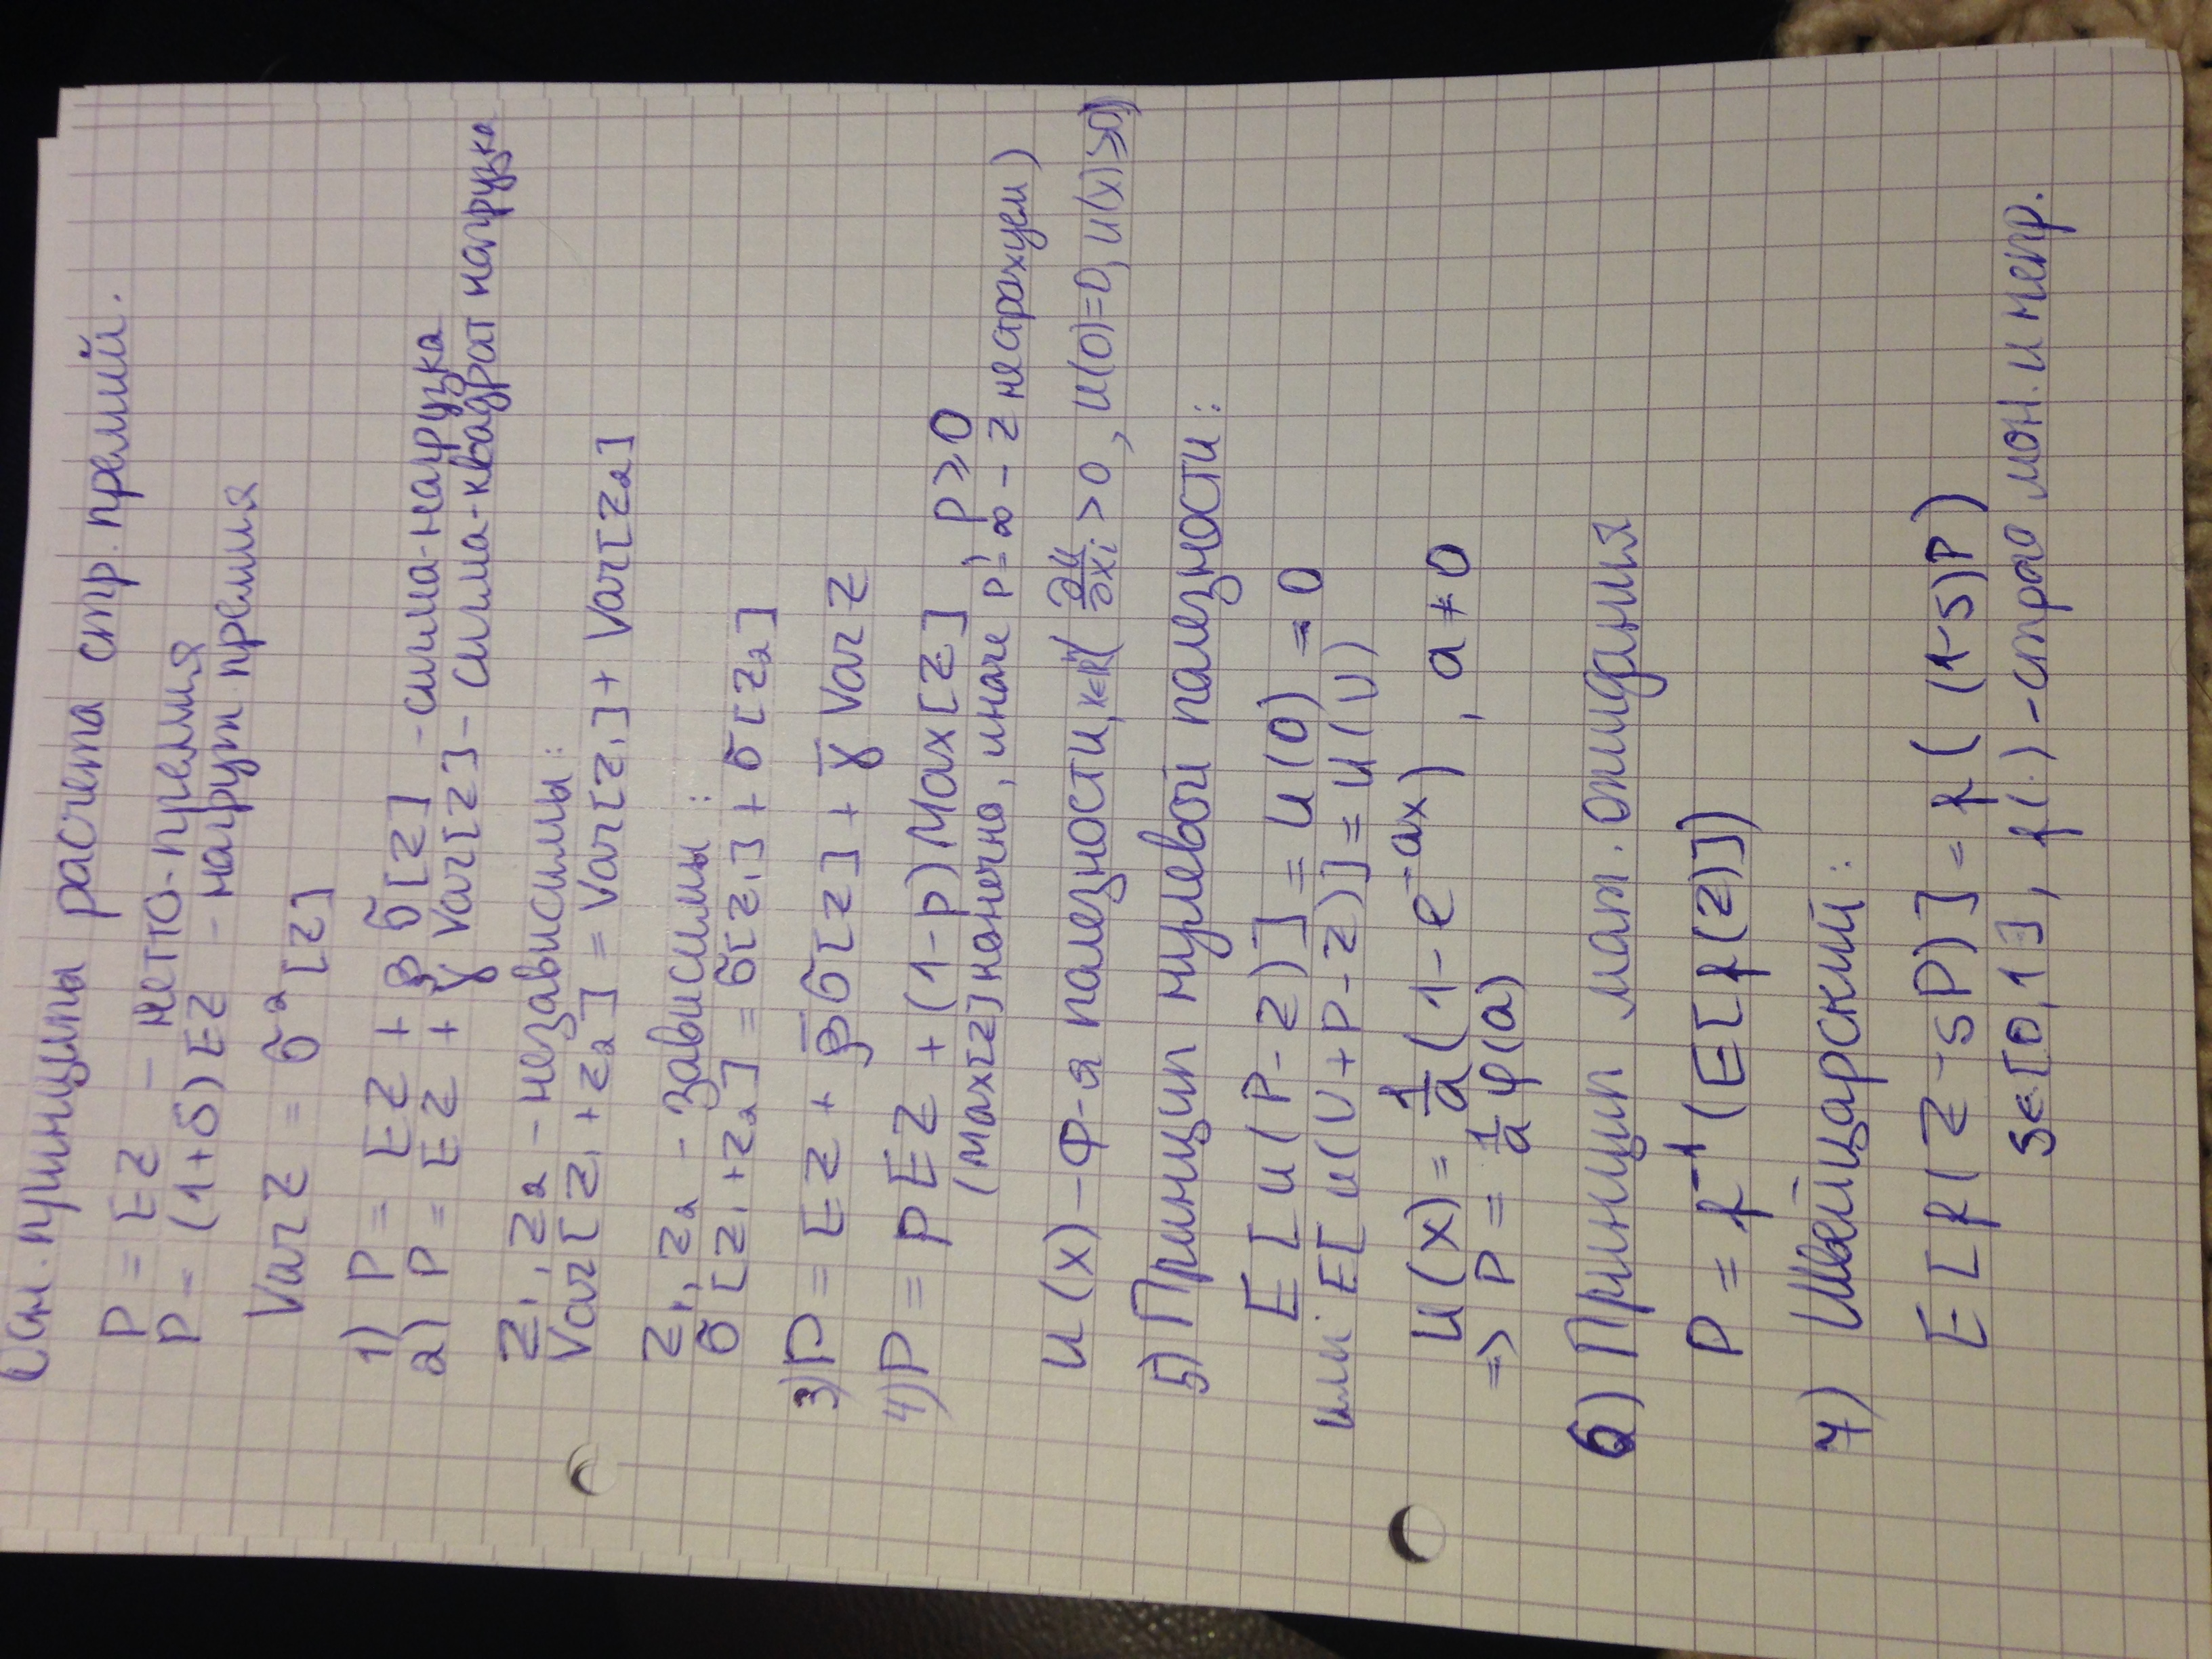 Осн. принципы расчета стр. премий.
P = EZ - нетто-премия
P = (1+δ) EZ - нагруж. премия
Var Z = σ² [Z]
1) P = EZ + β σ[Z] - сигма-нагрузка
2) P = EZ + γ Var[Z] - сигма-квадрат нагрузка
Z₁, Z₂ - независимы:
Var[Z₁+Z₂] = Var[Z₁] + Var[Z₂]
Z₁, Z₂ - зависимы:
σ[Z₁+Z₂] = σ[Z₁] + σ[Z₂]
3) P = EZ + β̄ σ[Z] + γ̄ Var Z
4) P = p EZ + (1-p) Max[Z], p ≥ 0
(Max[Z] конечно, иначе P = ∞ - Z не страхуем)
u(x) - ф-я полезности, x∈ℝⁿ (∂u/∂xᵢ > 0, u(0)=0, u(x) ≥ 0)
5) Принцип нулевой полезности:
E[u(P-Z)] = u(0) = 0
или E[u(U+P-Z)] = u(U)
u(x) = 1/a (1-e^(-ax)), a ≠ 0
=> P = 1/a φ(a)
6) Принцип мат. ожидания
P = f⁻¹(E[f(Z)])
7) Швейцарский:
E[f(Z-sP)] = f((1-s)P)
s∈[0,1], f(.) - строго мон. и непр.